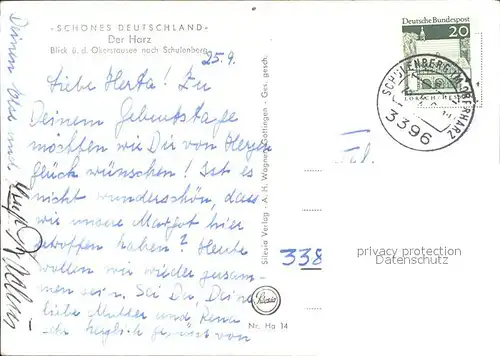 - SCHÖNES DEUTSCHLAND -
Der Harz
Blick ü. d. Okerstausee nach Schulenberg
25.9.
Liebe Herta! Zu
Deinem Geburtstage
möchten wir Dir von Herzen
Glück wünschen! Ist es
nicht wunderschön, dass
wir unsere Margot hier
getroffen haben? Heute
wollen wir wieder zusam-
men sein. Sei Du, Deine
liebe Mutter und Rena
herzlich gegrüsst von
Deinem
und
Silesia Verlag A. H. Wagner, Göttingen - Ges. gesch.
Silesia
Nr. Ha 14
Deutsche Bundespost
20
LORSCH/HESSEN
SCHULENBERG OBERHARZ
3396
Frl.
338
privacy protection
Datenschutz